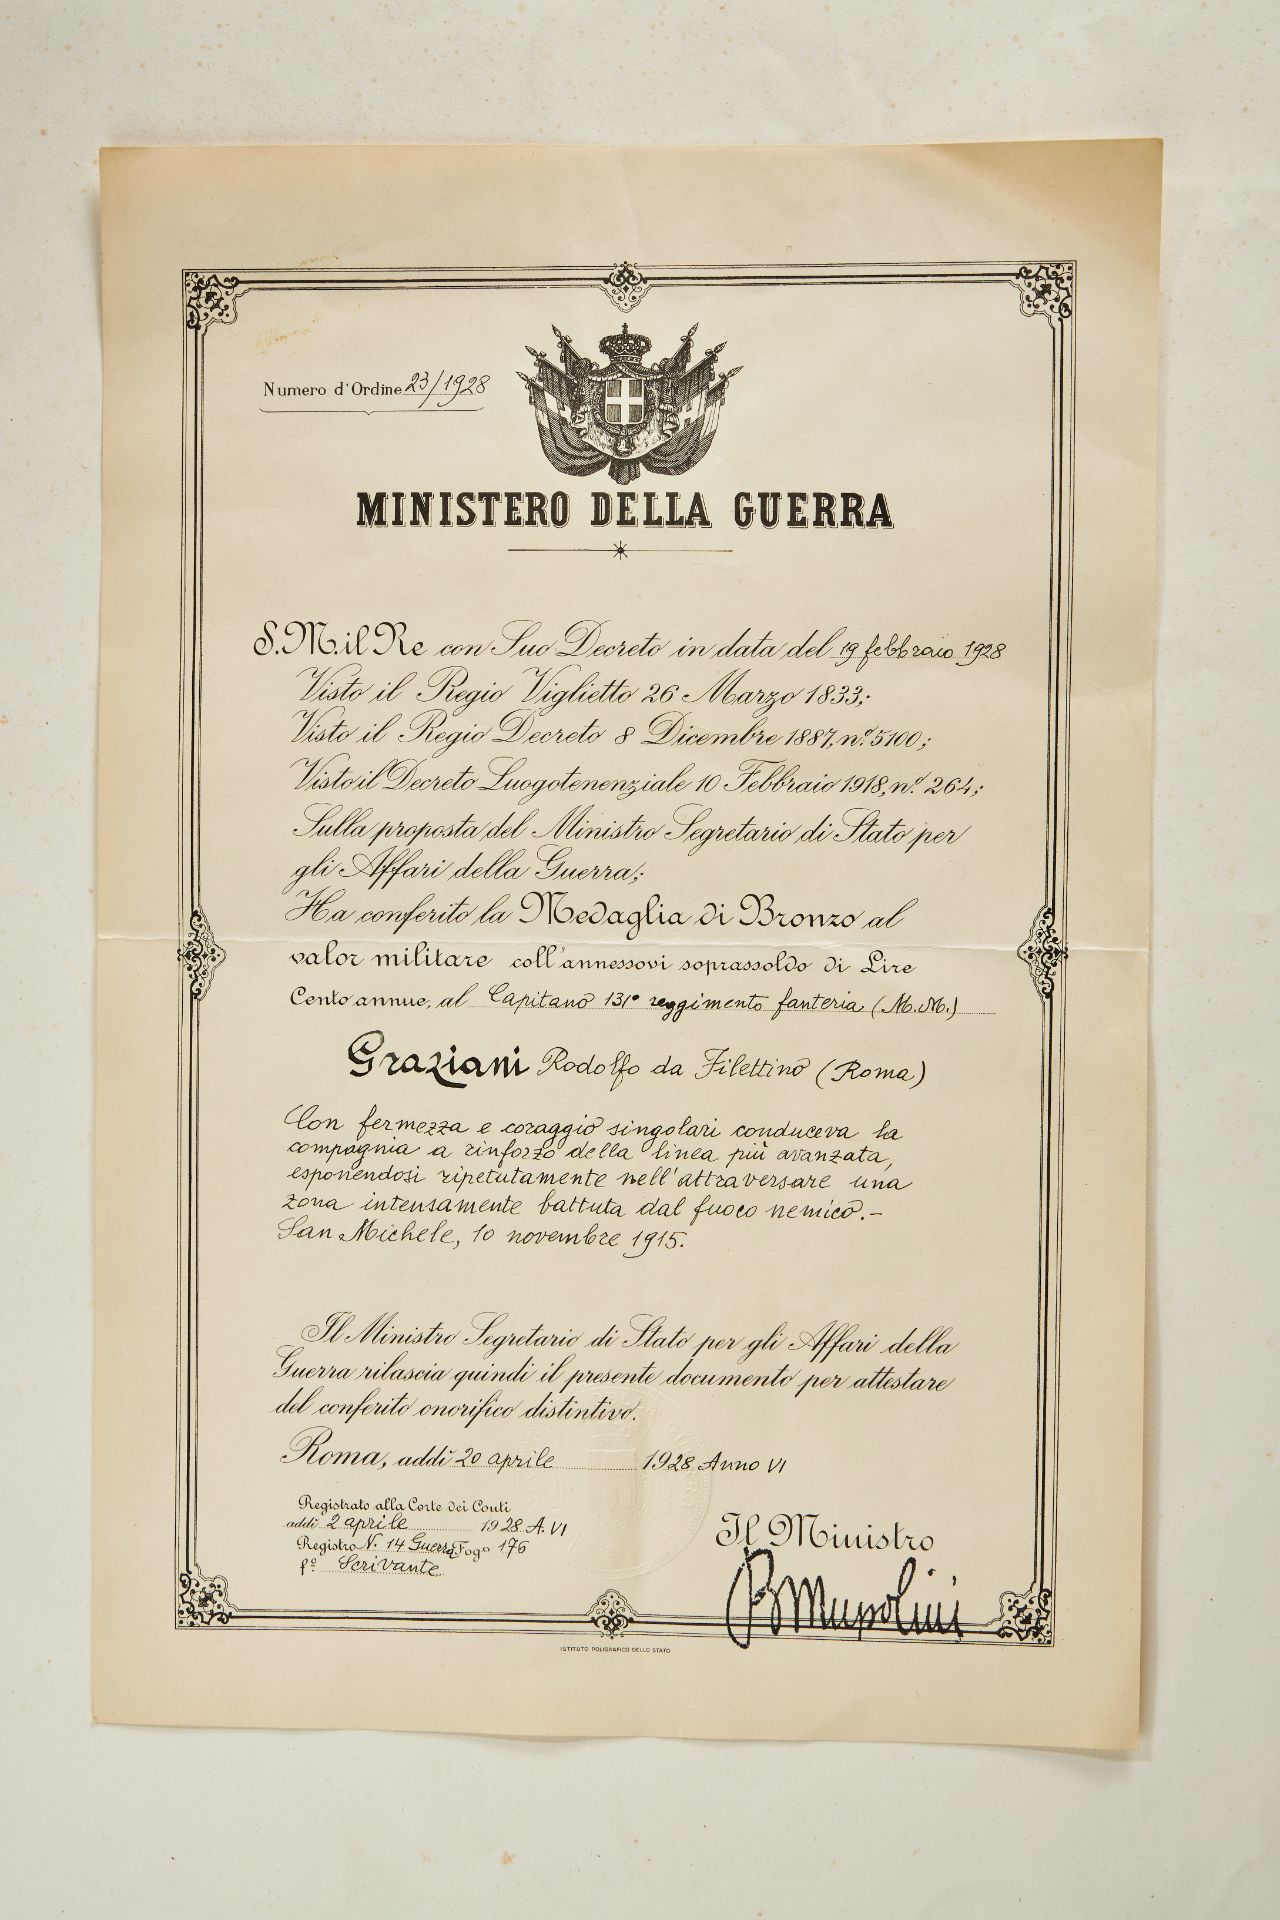 Numero d'Ordine 23/1928
MINISTERO DELLA GUERRA
S. M. il Re con Suo Decreto in data del 19 febbraio 1928
Visto il Regio Viglietto 26 Marzo 1833;
Visto il Regio Decreto 8 Dicembre 1887, n.º 5100;
Visto il Decreto Luogotenenziale 10 Febbraio 1918, n.º 264;
Sulla proposta del Ministro Segretario di Stato per
gli Affari della Guerra;
Ha conferito la Medaglia di Bronzo al
valor militare coll'annessovi soprassoldo di Lire
Cento annue, al Capitano 131º reggimento fanteria (M.M.)
Graziani Rodolfo da Filettino (Roma)
Con fermezza e coraggio singolari conduceva la
compagnia a rinforzo della linea più avanzata,
esponendosi ripetutamente nell'attraversare una
zona intensamente battuta dal fuoco nemico.-
San Michele, 10 novembre 1915.
Il Ministro Segretario di Stato per gli Affari della
Guerra rilascia quindi il presente documento per attestare
del conferito onorifico distintivo.
Roma, addì 20 aprile 1928 Anno VI
Registrato alla Corte dei Conti
addì 2 aprile 1928 A. VI
Registro N. 14 Guerra Fogo 176
fº Scrivante
Il Ministro
B Mussolini
ISTITUTO POLIGRAFICO DELLO STATO